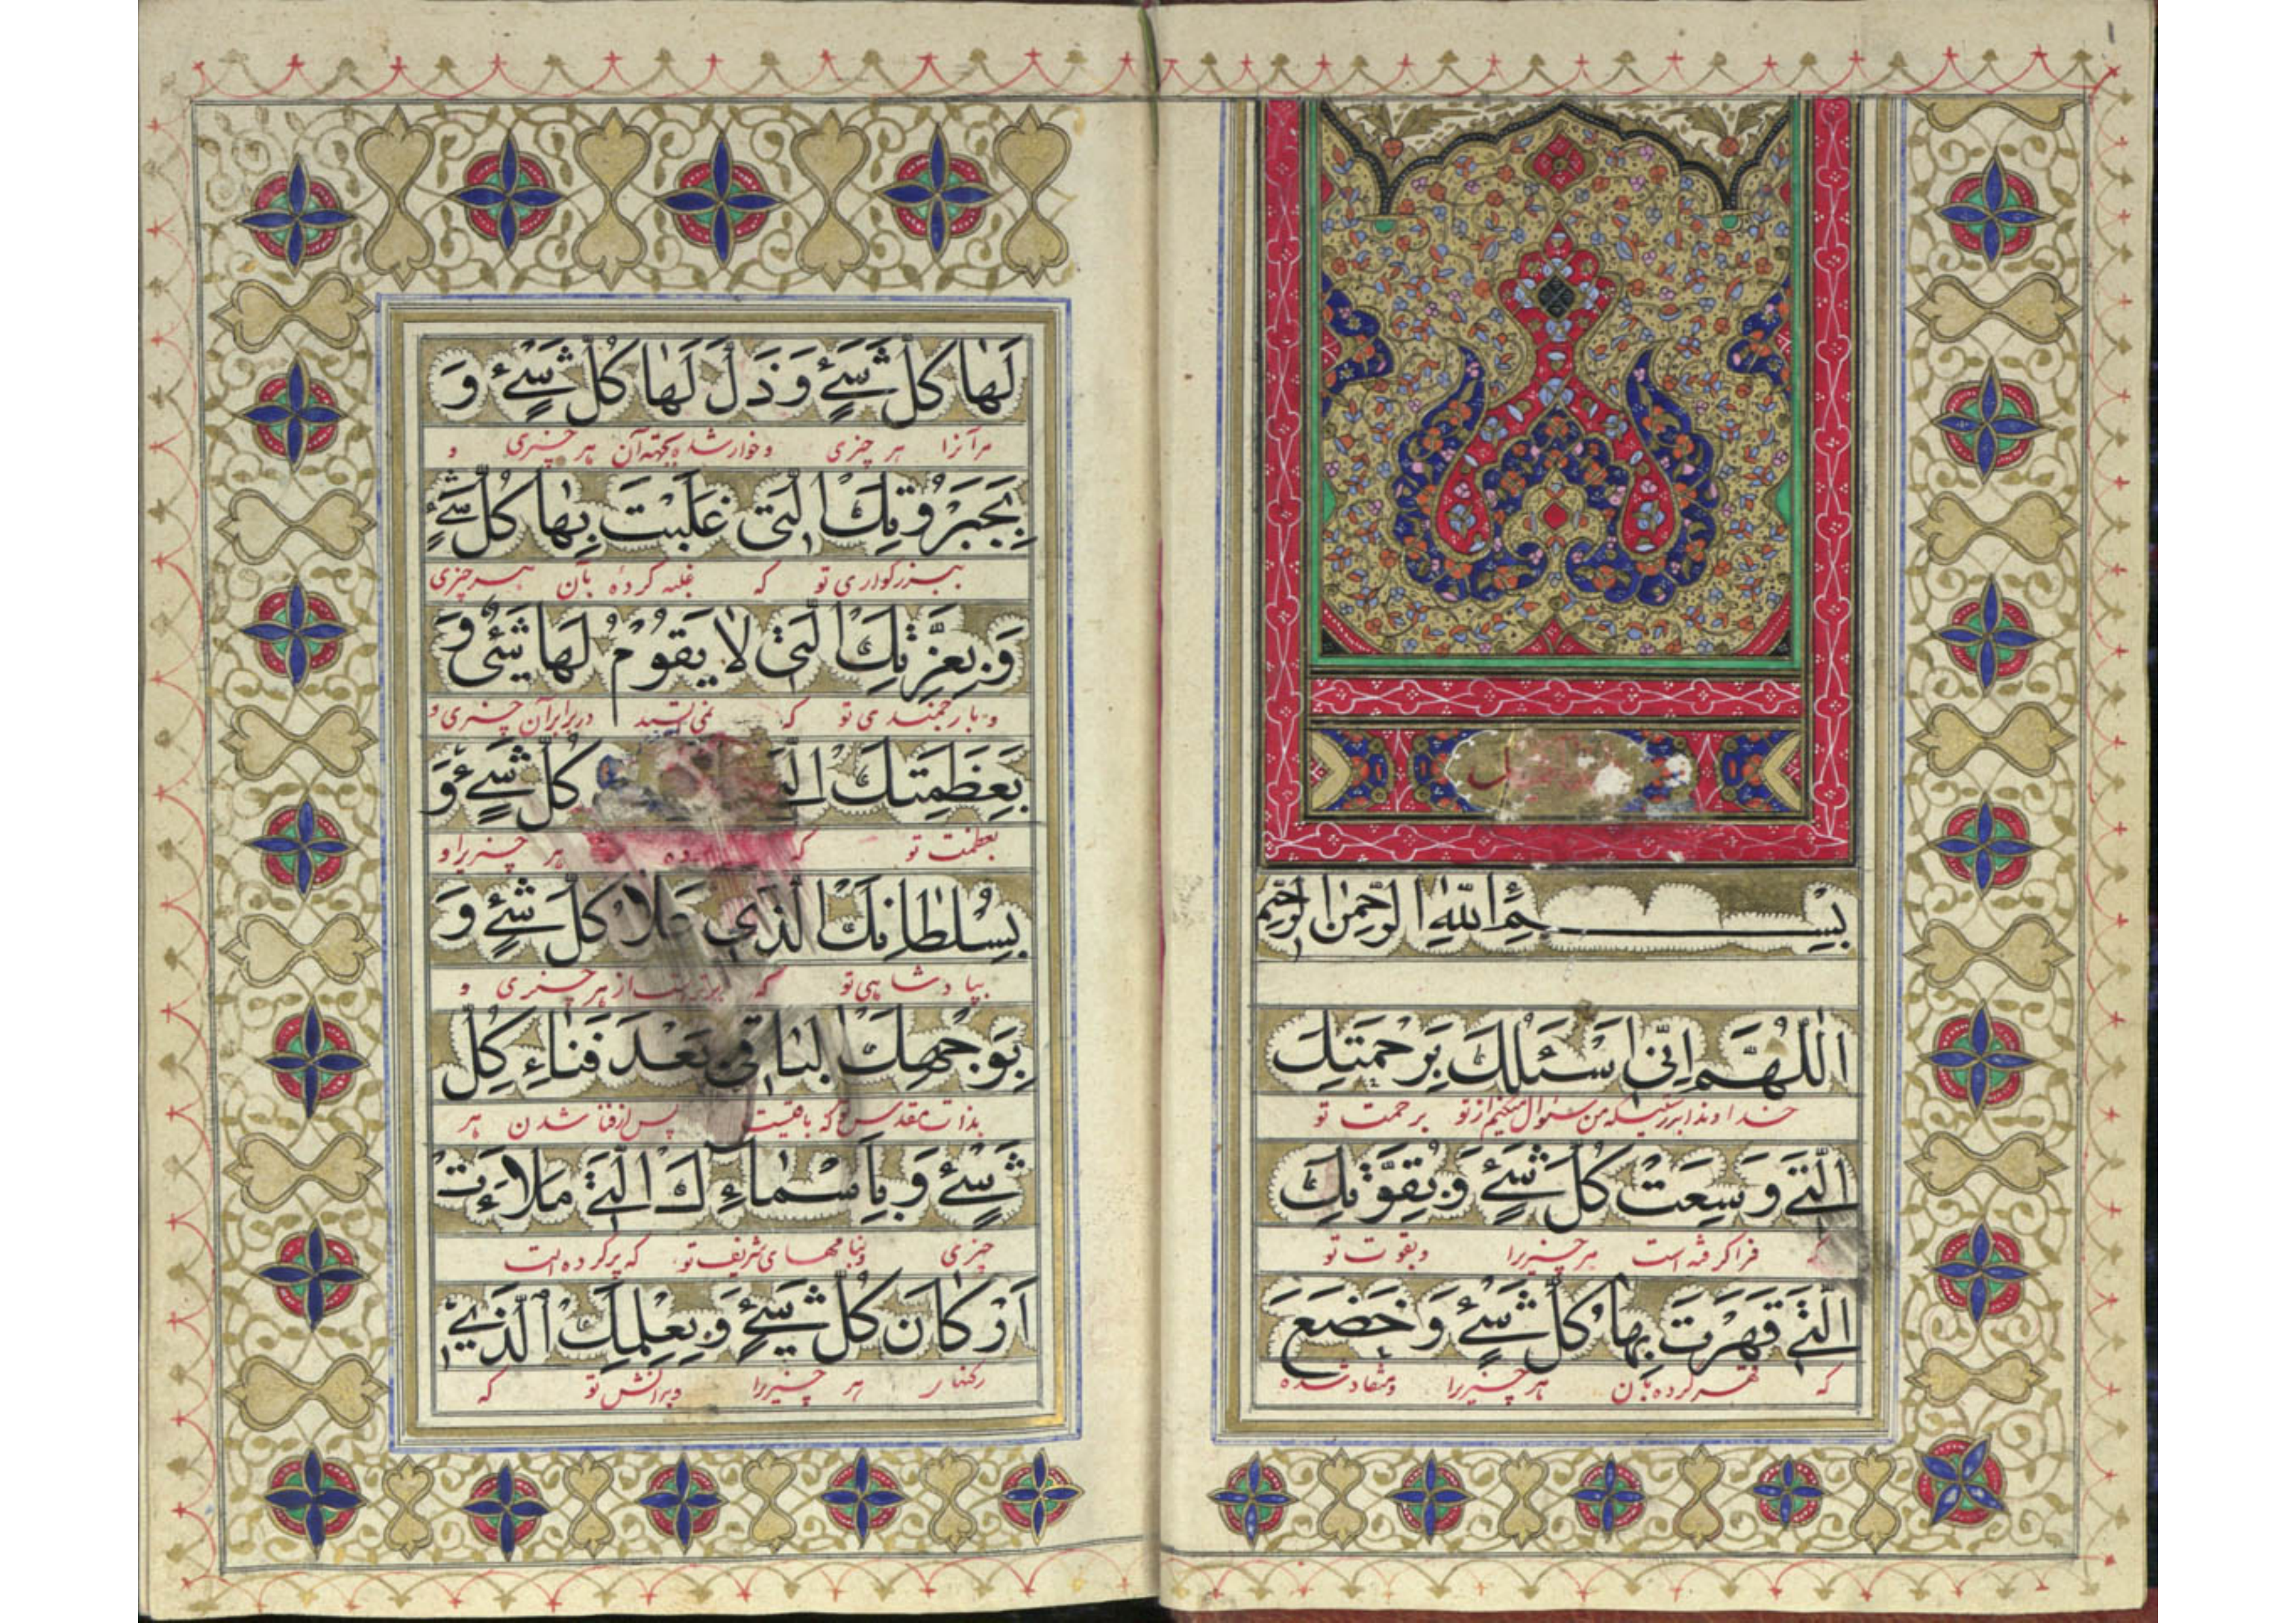 بِسْمِ اللّٰهِ الرَّحْمٰنِ الرَّحیمِ
اَللّٰهُمَّ اِنّی اَسْئَلُكَ بِرَحْمَتِكَ
خداوندا بدرستیکه من سئوال میکنم از تو برحمت تو
الَّتی وَسِعَتْ كُلَّ شَیْءٍ وَ بِقُوَّتِكَ
که فرا گرفته است هر چیزیرا و بقوت تو
الَّتی قَهَرْتَ بِها كُلَّ شَیْءٍ وَ خَضَعَ
که قهر کرده بآن هر چیزیرا و منقاد شده
لَها كُلُّ شَیْءٍ وَ ذَلَّ لَها كُلُّ شَیْءٍ وَ
مر آنرا هر چیزی و خوار شده بجهته آن هر چیزی و
بِجَبَرُوتِكَ الَّتی غَلَبْتَ بِها كُلَّ شَیْءٍ
ببزرگواری تو که غلبه کردهٔ بآن بهر چیزی
وَ بِعِزَّتِكَ الَّتی لا یَقُومُ لَها شَیْءٌ وَ
و بارجمندی تو که در برابر آن چیزی و
بِعَظَمَتِكَ كُلَّ شَیْءٍ وَ
بعظمت تو که هر چیزیرا و
بِسُلْطانِكَ الَّذی عَلا كُلَّ شَیْءٍ وَ
بپادشاهی تو که برتر است از هر چیزی و
بِوَجْهِكَ الْباقی بَعْدَ فَناءِ كُلِّ
بذات مقدس تو که باقیست پس از فنا شدن هر
شَیْءٍ وَ بِاَسْماءِكَ الَّتی مَلَاَءَتْ
چیزی و بنامهای شریف تو که پر کرده است
اَرْكانَ كُلِّ شَیْءٍ وَ بِعِلْمِكَ الَّذی
رکنهای هر چیزیرا و بدانش تو که